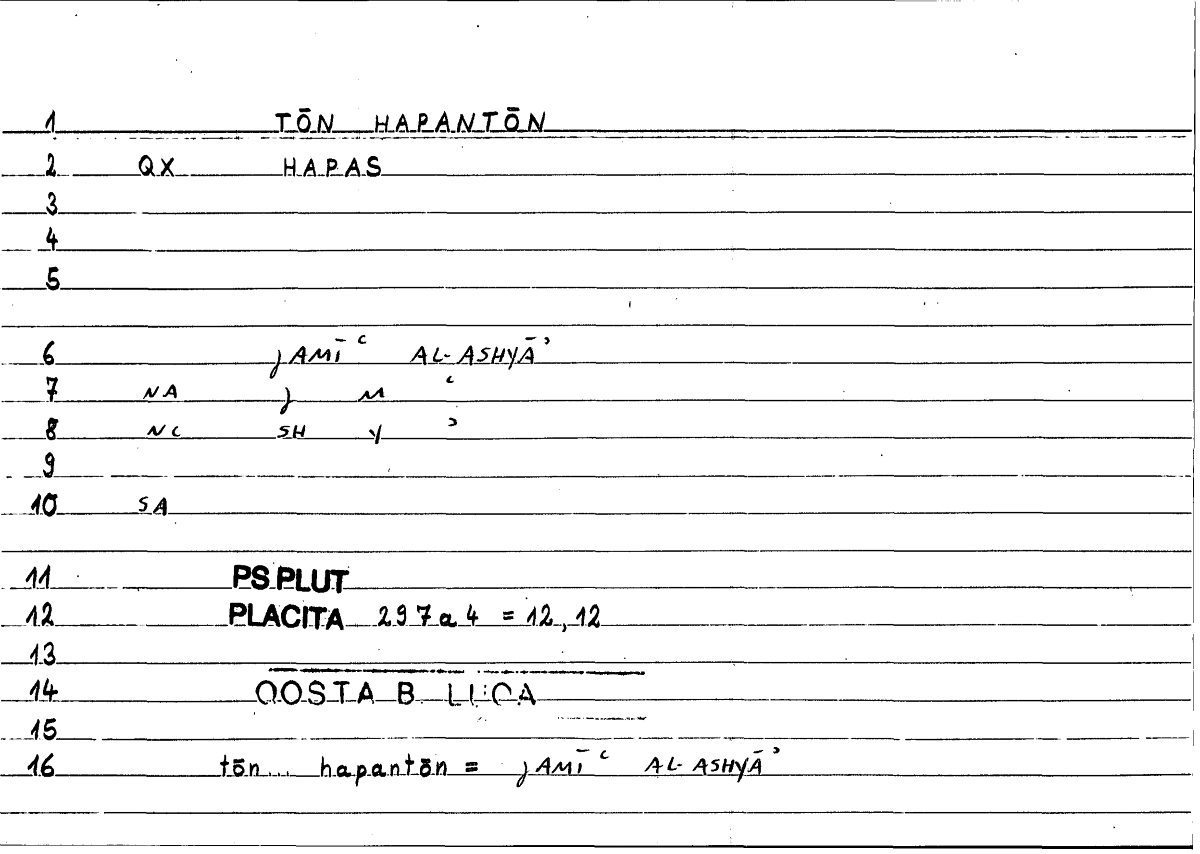 1 TŌN HAPANTŌN
2 QX HAPAS
3
4
5
6 jAMĪʿ AL-ASHYĀʾ
7 NA j M ʿ
8 NC SH Y ʾ
9
10 SA
11 PS PLUT
12 PLACITA 297a4 = 12,12
13
14 QOSTA B. LUCA
15
16 tōn... hapantōn = jAMĪʿ AL-ASHYĀʾ